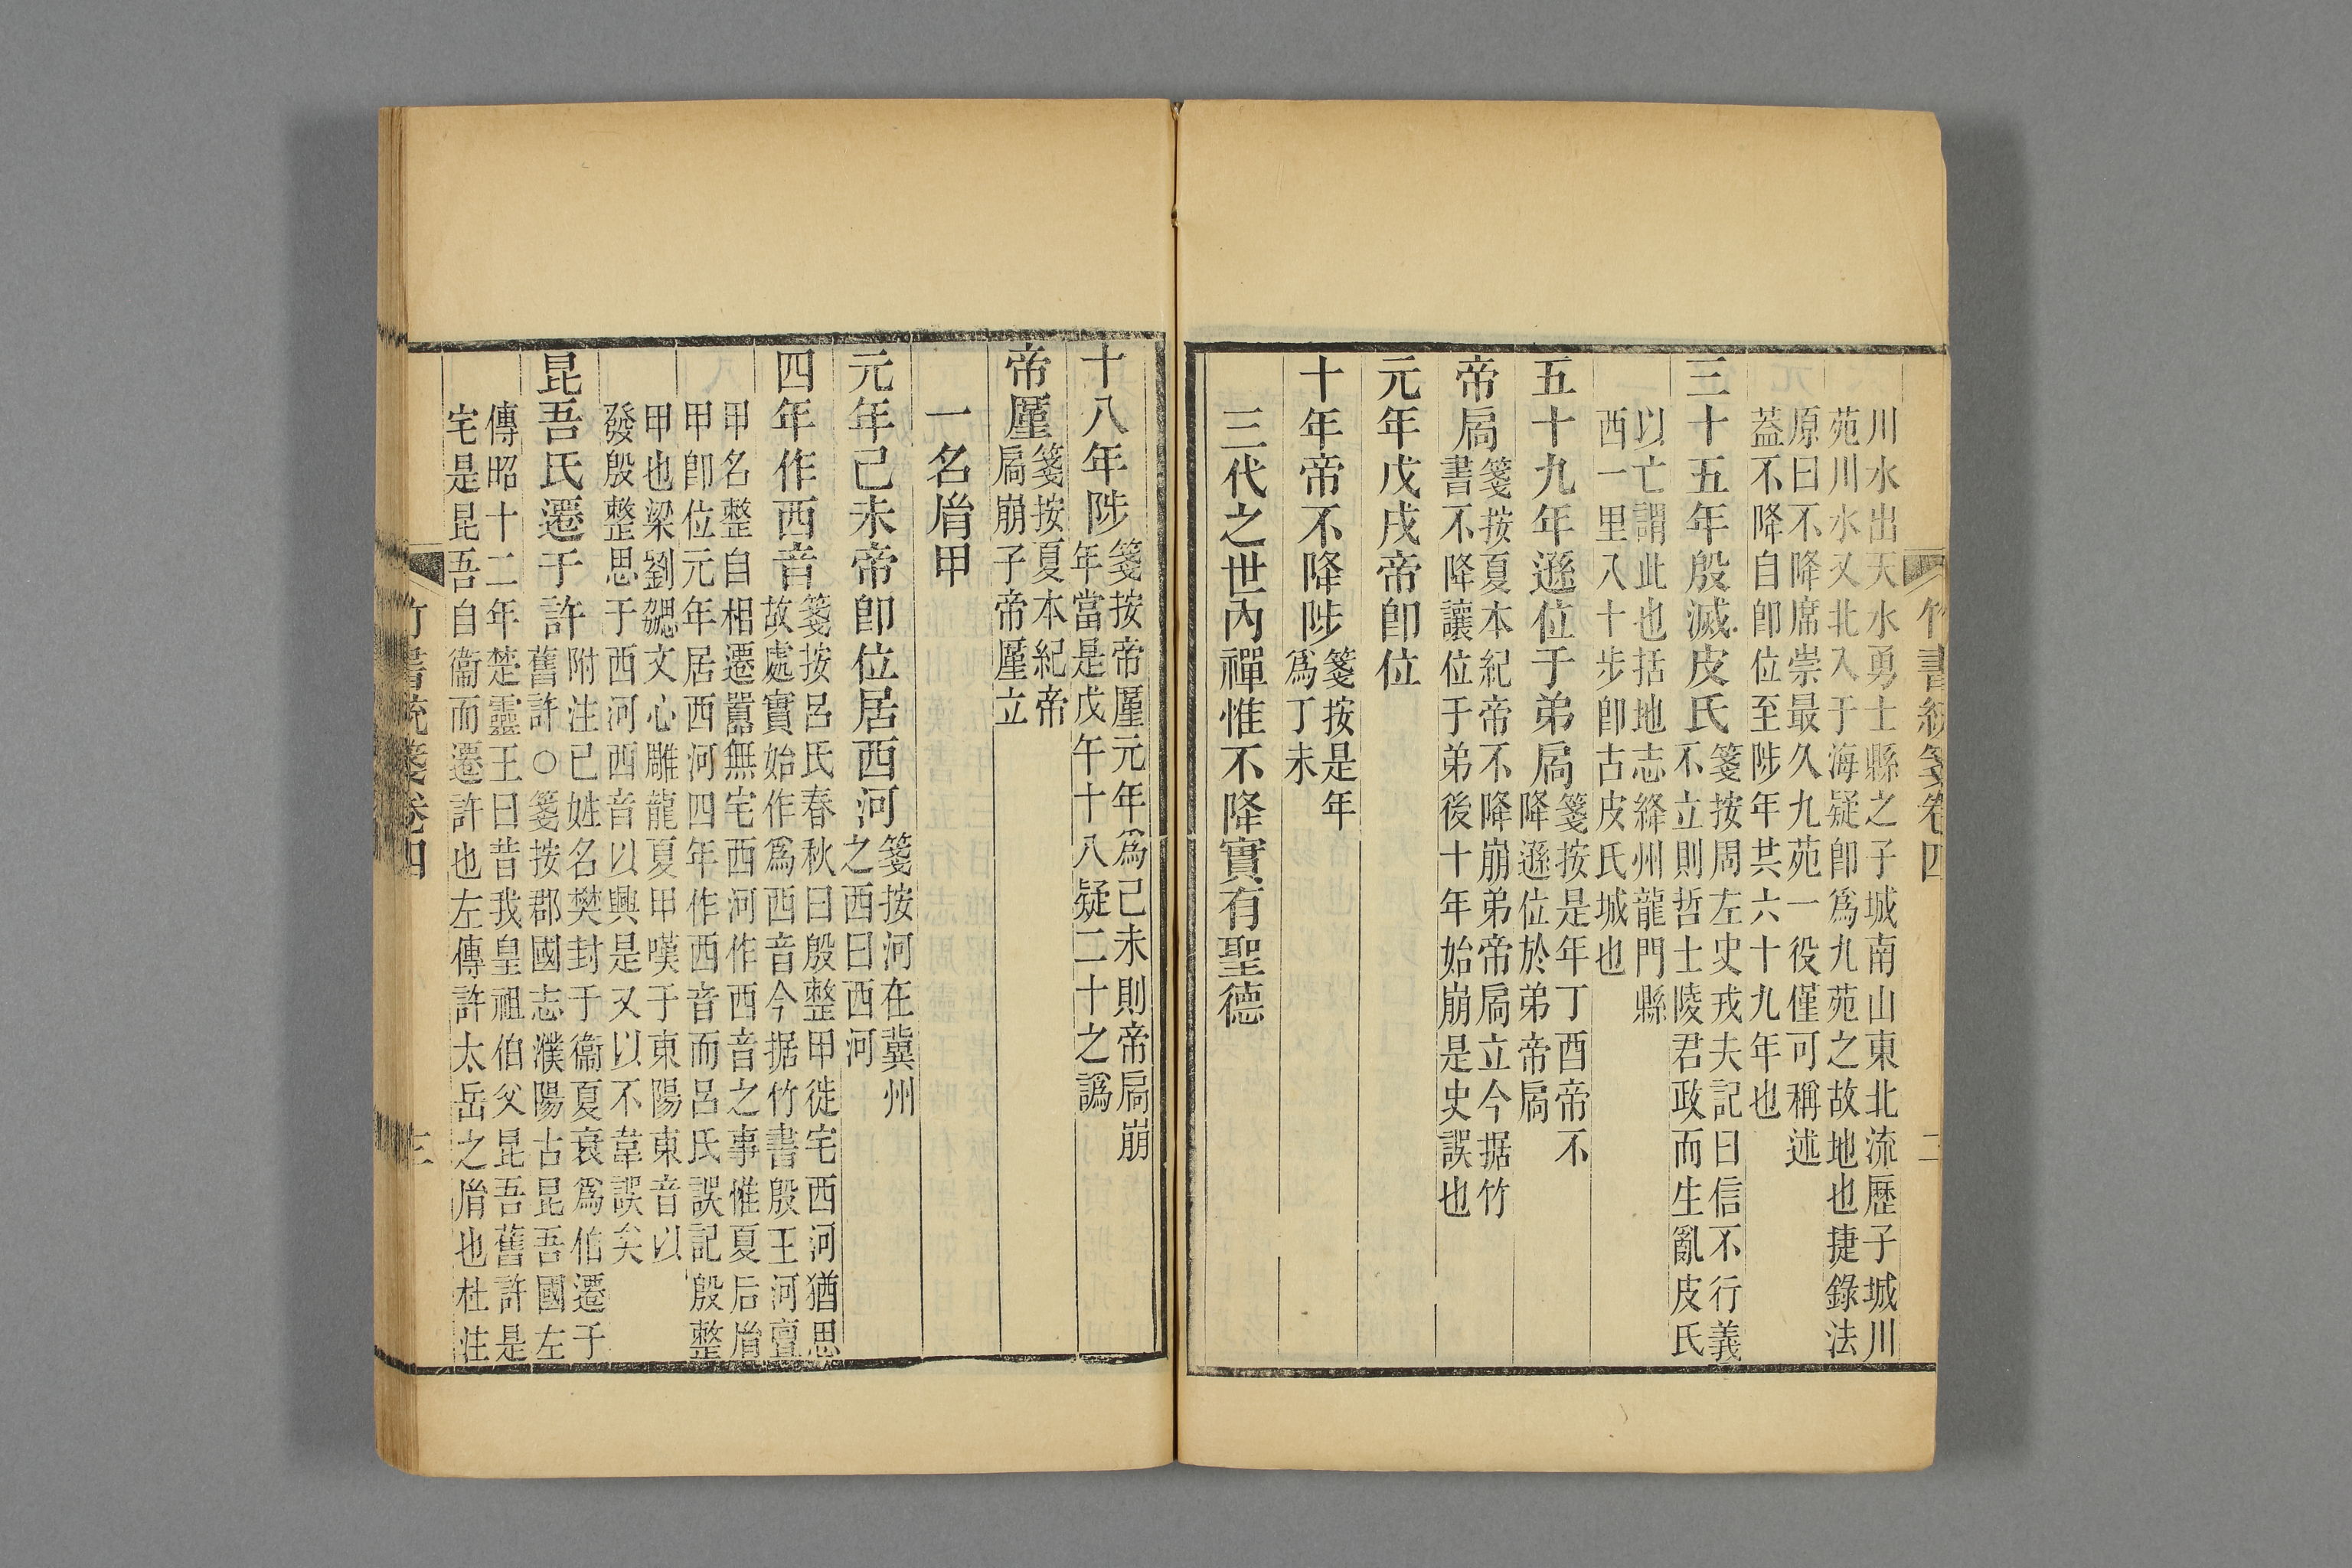 竹書統箋卷四
二
川水出天水勇士縣之子城南山東北流歷子城川
苑川水又北入于海疑卽爲九苑之故地也捷錄法
原曰不降席崇最久九苑一役僅可稱述
蓋不降自卽位至陟年共六十九年也
三十五年殷滅皮氏
箋按周左史戎夫記曰信不行義
不立則哲士陵君政而生亂皮氏
以亡謂此也括地志絳州龍門縣
西一里八十步卽古皮氏城也
五十九年遜位于弟扃
箋按是年丁酉帝不
降遜位於弟帝扃
帝扃
箋按夏本紀帝不降崩弟帝扃立今据竹
書不降讓位于弟後十年始崩是史誤也
元年戊戌帝卽位
十年帝不降陟
箋按是年
爲丁未
三代之世內禪惟不降實有聖德
十八年陟
箋按帝廑元年爲己未則帝扃崩
年當是戊午十八疑二十之譌
帝廑
箋按夏本紀帝
扃崩子帝廑立
一名胤甲
元年己未帝卽位居西河
箋按河在冀州
之西曰西河
四年作西音
箋按呂氏春秋曰殷整甲徙宅西河猶思
故處實始作爲西音今据竹書殷王河亶
甲名整自相遷囂無宅西河作西音之事惟夏后胤
甲卽位元年居西河四年作西音而呂氏誤記殷整
甲也梁劉勰文心雕龍夏甲嘆于東陽東音以
發殷整思于西河西音以興是又以不韋誤矣
昆吾氏遷于許
附注已姓名樊封于衞夏衰爲伯遷于
舊許○箋按郡國志濮陽古昆吾國左
傳昭十二年楚靈王曰昔我皇祖伯父昆吾舊許是
宅是昆吾自衞而遷許也左傳許太岳之胤也杜注
竹書統箋卷四
三